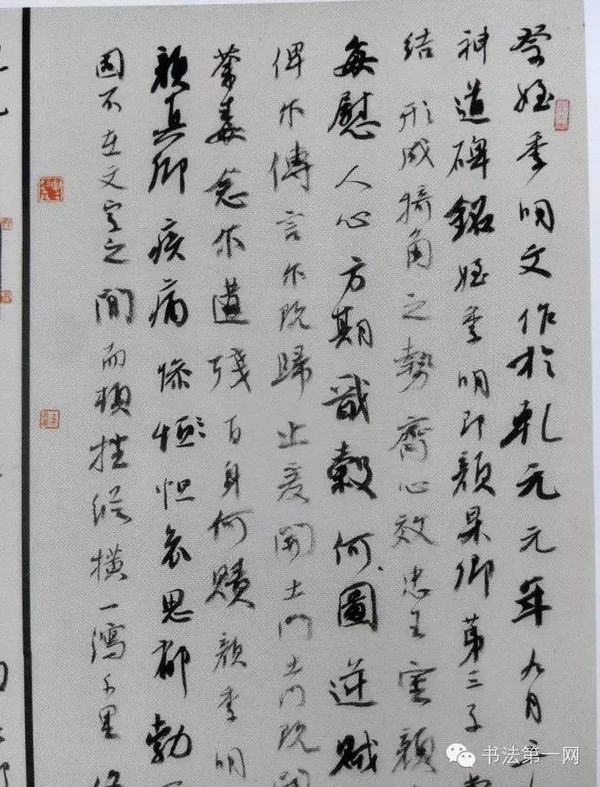 祭姪季明文作於乾元元年九月三
神道碑銘姪季明即顏杲卿第三子
結形成犄角之勢齊心效忠王室顏
每慰人心方期戩穀何圖逆賊
俾尔傳言尔既歸止爰開土門土门既開
荼毒念尔遘殘百身何贖顏季明
顏真卿疾痛慘怛怛哀思郁勃
固不在文字之間而頓挫縱橫一瀉千里
书法第一网